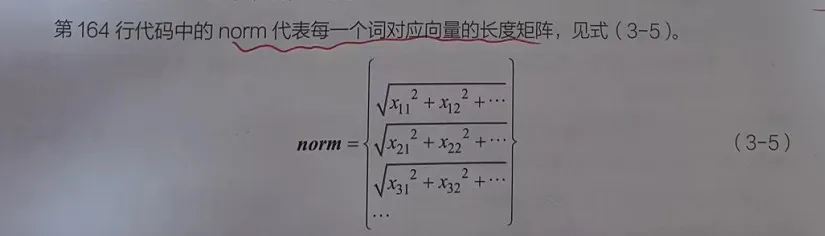 第 164 行代码中的 norm 代表每一个词对应向量的长度矩阵，见式（3-5）。
√x₁₁² + x₁₂² + ⋯
norm = √x₂₁² + x₂₂² + ⋯ （3-5）
√x₃₁² + x₃₂² + ⋯
⋯